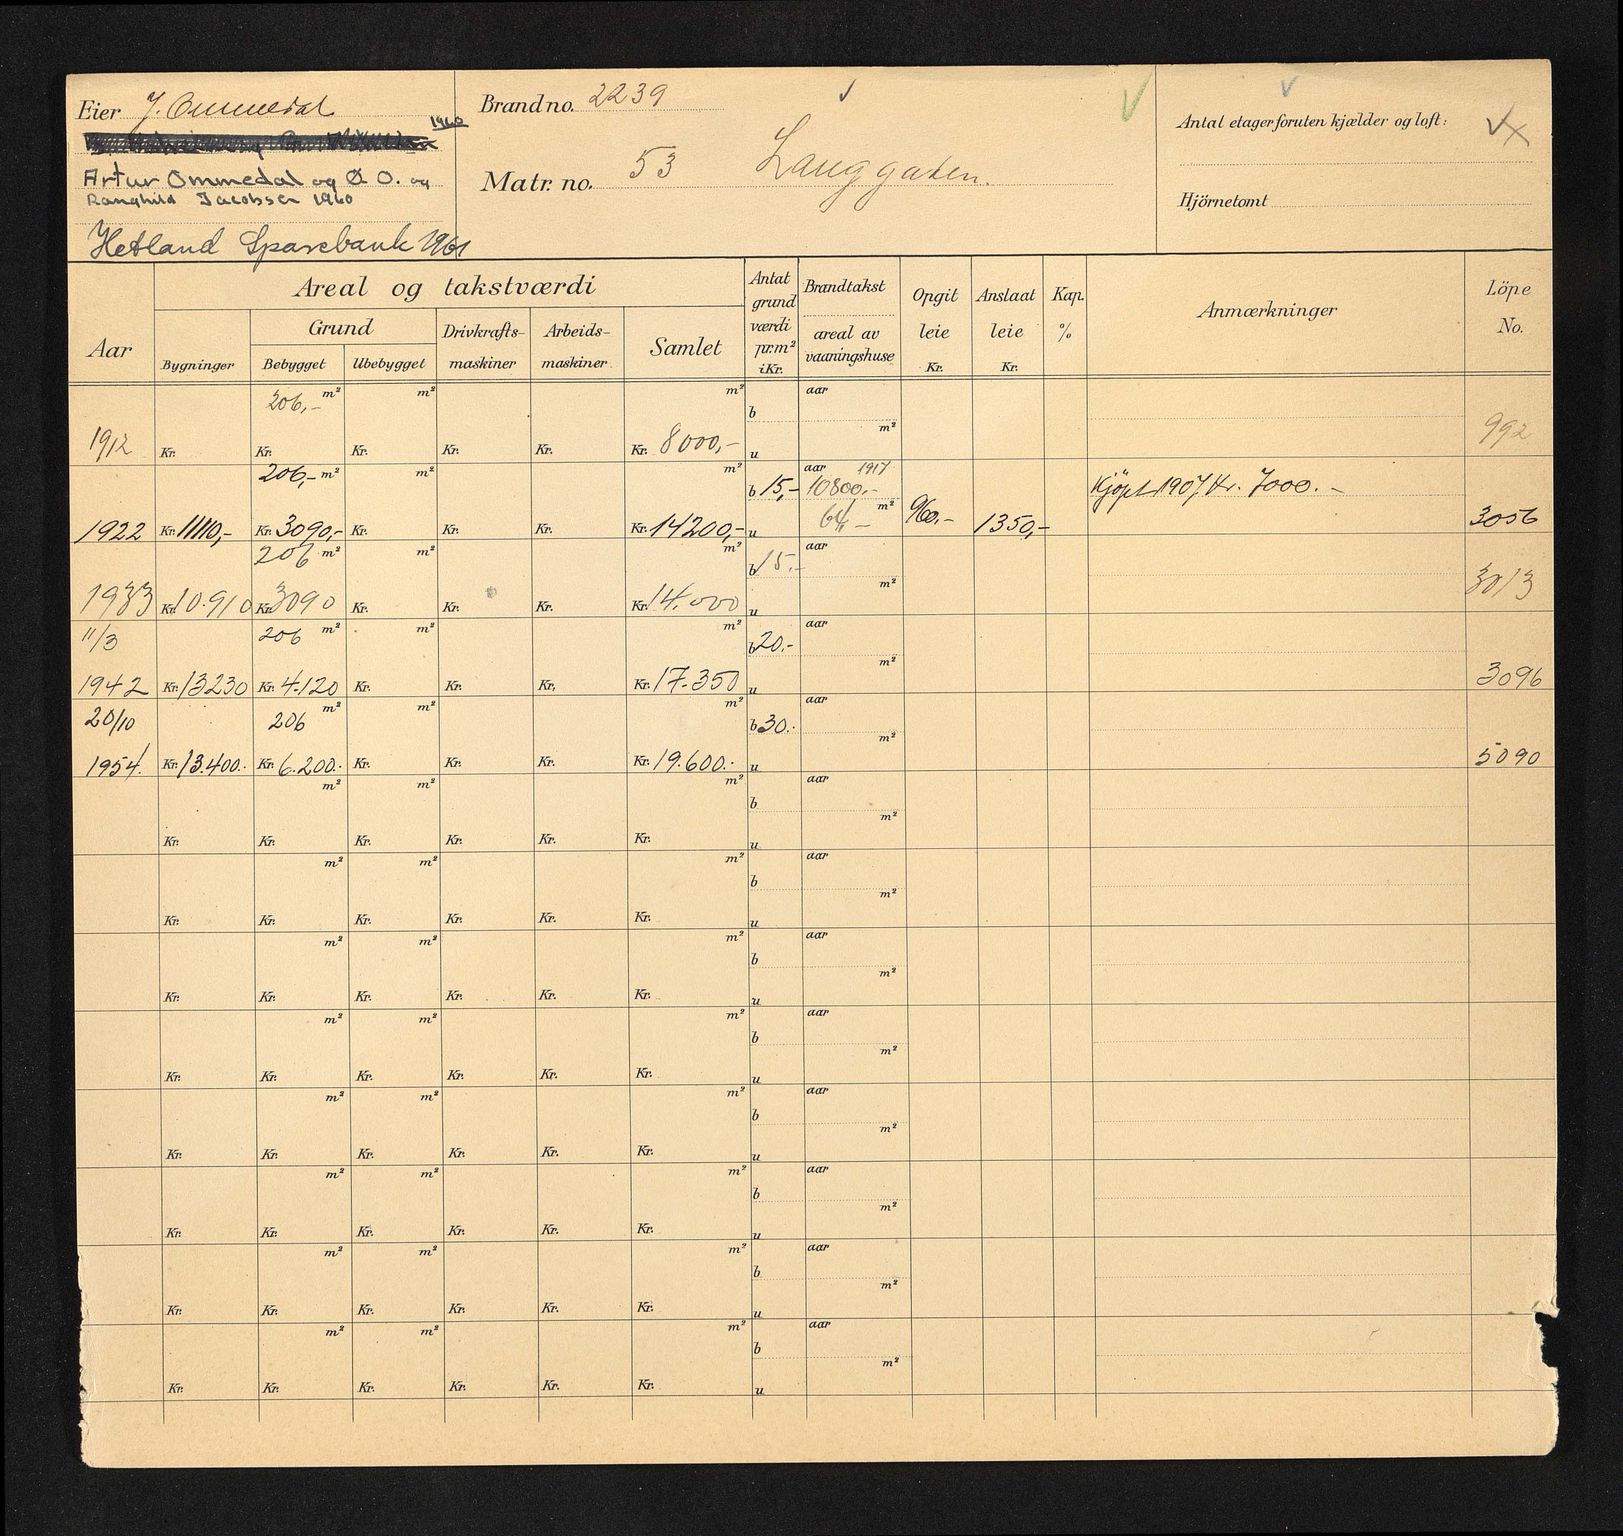 Eier J. Ommedal
1960
Artur Ommedal og Ø O. og
Ranghild Jacobsen 1960
Hetland Sparebank 1961
Brand no. 2239
Matr. no. 53 Langgaten.
Antal etager foruten kjælder og loft:
Hjörnetomt
Aar
Areal og takstværdi
Bygninger
Grund
Bebygget Ubebygget
Drivkrafts-
maskiner
Arbeids-
maskiner
Samlet
Antat
grund
værdi
pr. m²
i Kr.
Brandtakst
areal av
vaaningshuse
Opgit
leie
Kr.
Anslaat
leie
Kr.
Kap.
%
Anmærkninger
Löpe
No.
206,- m² m² m² b aar
1912 Kr. Kr. Kr. Kr. Kr. Kr. 8000,- u m² 992
206,- m² m² m² b 15,- aar 1917 10800.- Kjöpt 1907 Kr. 7000.-
1922 Kr. 11110,- Kr. 3090,- Kr. Kr. Kr. Kr. 14200,- u m² 960.- 1350,- 3056
206 m² m² m² b 15.- aar
1933 Kr. 10.910 Kr. 3090 Kr. Kr. Kr. Kr. 14.000 u m² 3013
11/3 206 m² m² m² b 20.- aar
1942 Kr. 13230 Kr. 4.120 Kr. Kr. Kr. Kr. 17.350 u m² 3096
20/10 206 m² m² m² b 30.- aar
1954. Kr. 13.400.- Kr. 6.200.- Kr. Kr. Kr. Kr. 19.600.- u m² 5090
m² m² m² b aar
Kr. Kr. Kr. Kr. Kr. Kr. u m²
m² m² m² b aar
Kr. Kr. Kr. Kr. Kr. Kr. u m²
m² m² m² b aar
Kr. Kr. Kr. Kr. Kr. Kr. u m²
m² m² m² b aar
Kr. Kr. Kr. Kr. Kr. Kr. u m²
m² m² m² b aar
Kr. Kr. Kr. Kr. Kr. Kr. u m²
m² m² m² b aar
Kr. Kr. Kr. Kr. Kr. Kr. u m²
m² m² m² b aar
Kr. Kr. Kr. Kr. Kr. Kr. u m²
m² m² m² b aar
Kr. Kr. Kr. Kr. Kr. Kr. u m²